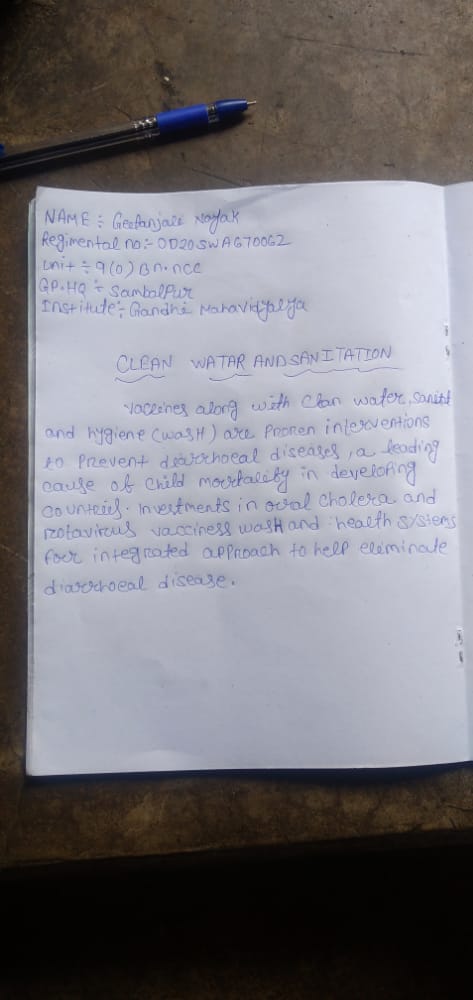 NAME :- Geetanjali Nayak
Regimental no:- OD20SWAG70062
Unit :- 9(O) Bn. ncc
GP.HQ :- Sambalpur
Institute:- Gandhi Mahavidyalya
CLEAN WATAR AND SANITATION
Vaccines along with Clan water, Sanitat
and hygiene (wasH) are Pronen interventions
to Prevent diarrhoeal diseases, a leading
cause of child mortality in developing
countries. Investments in oral cholera and
rotavirus vacciness wash and health systems
for integrated approach to help eliminate
diarrhoeal disease.